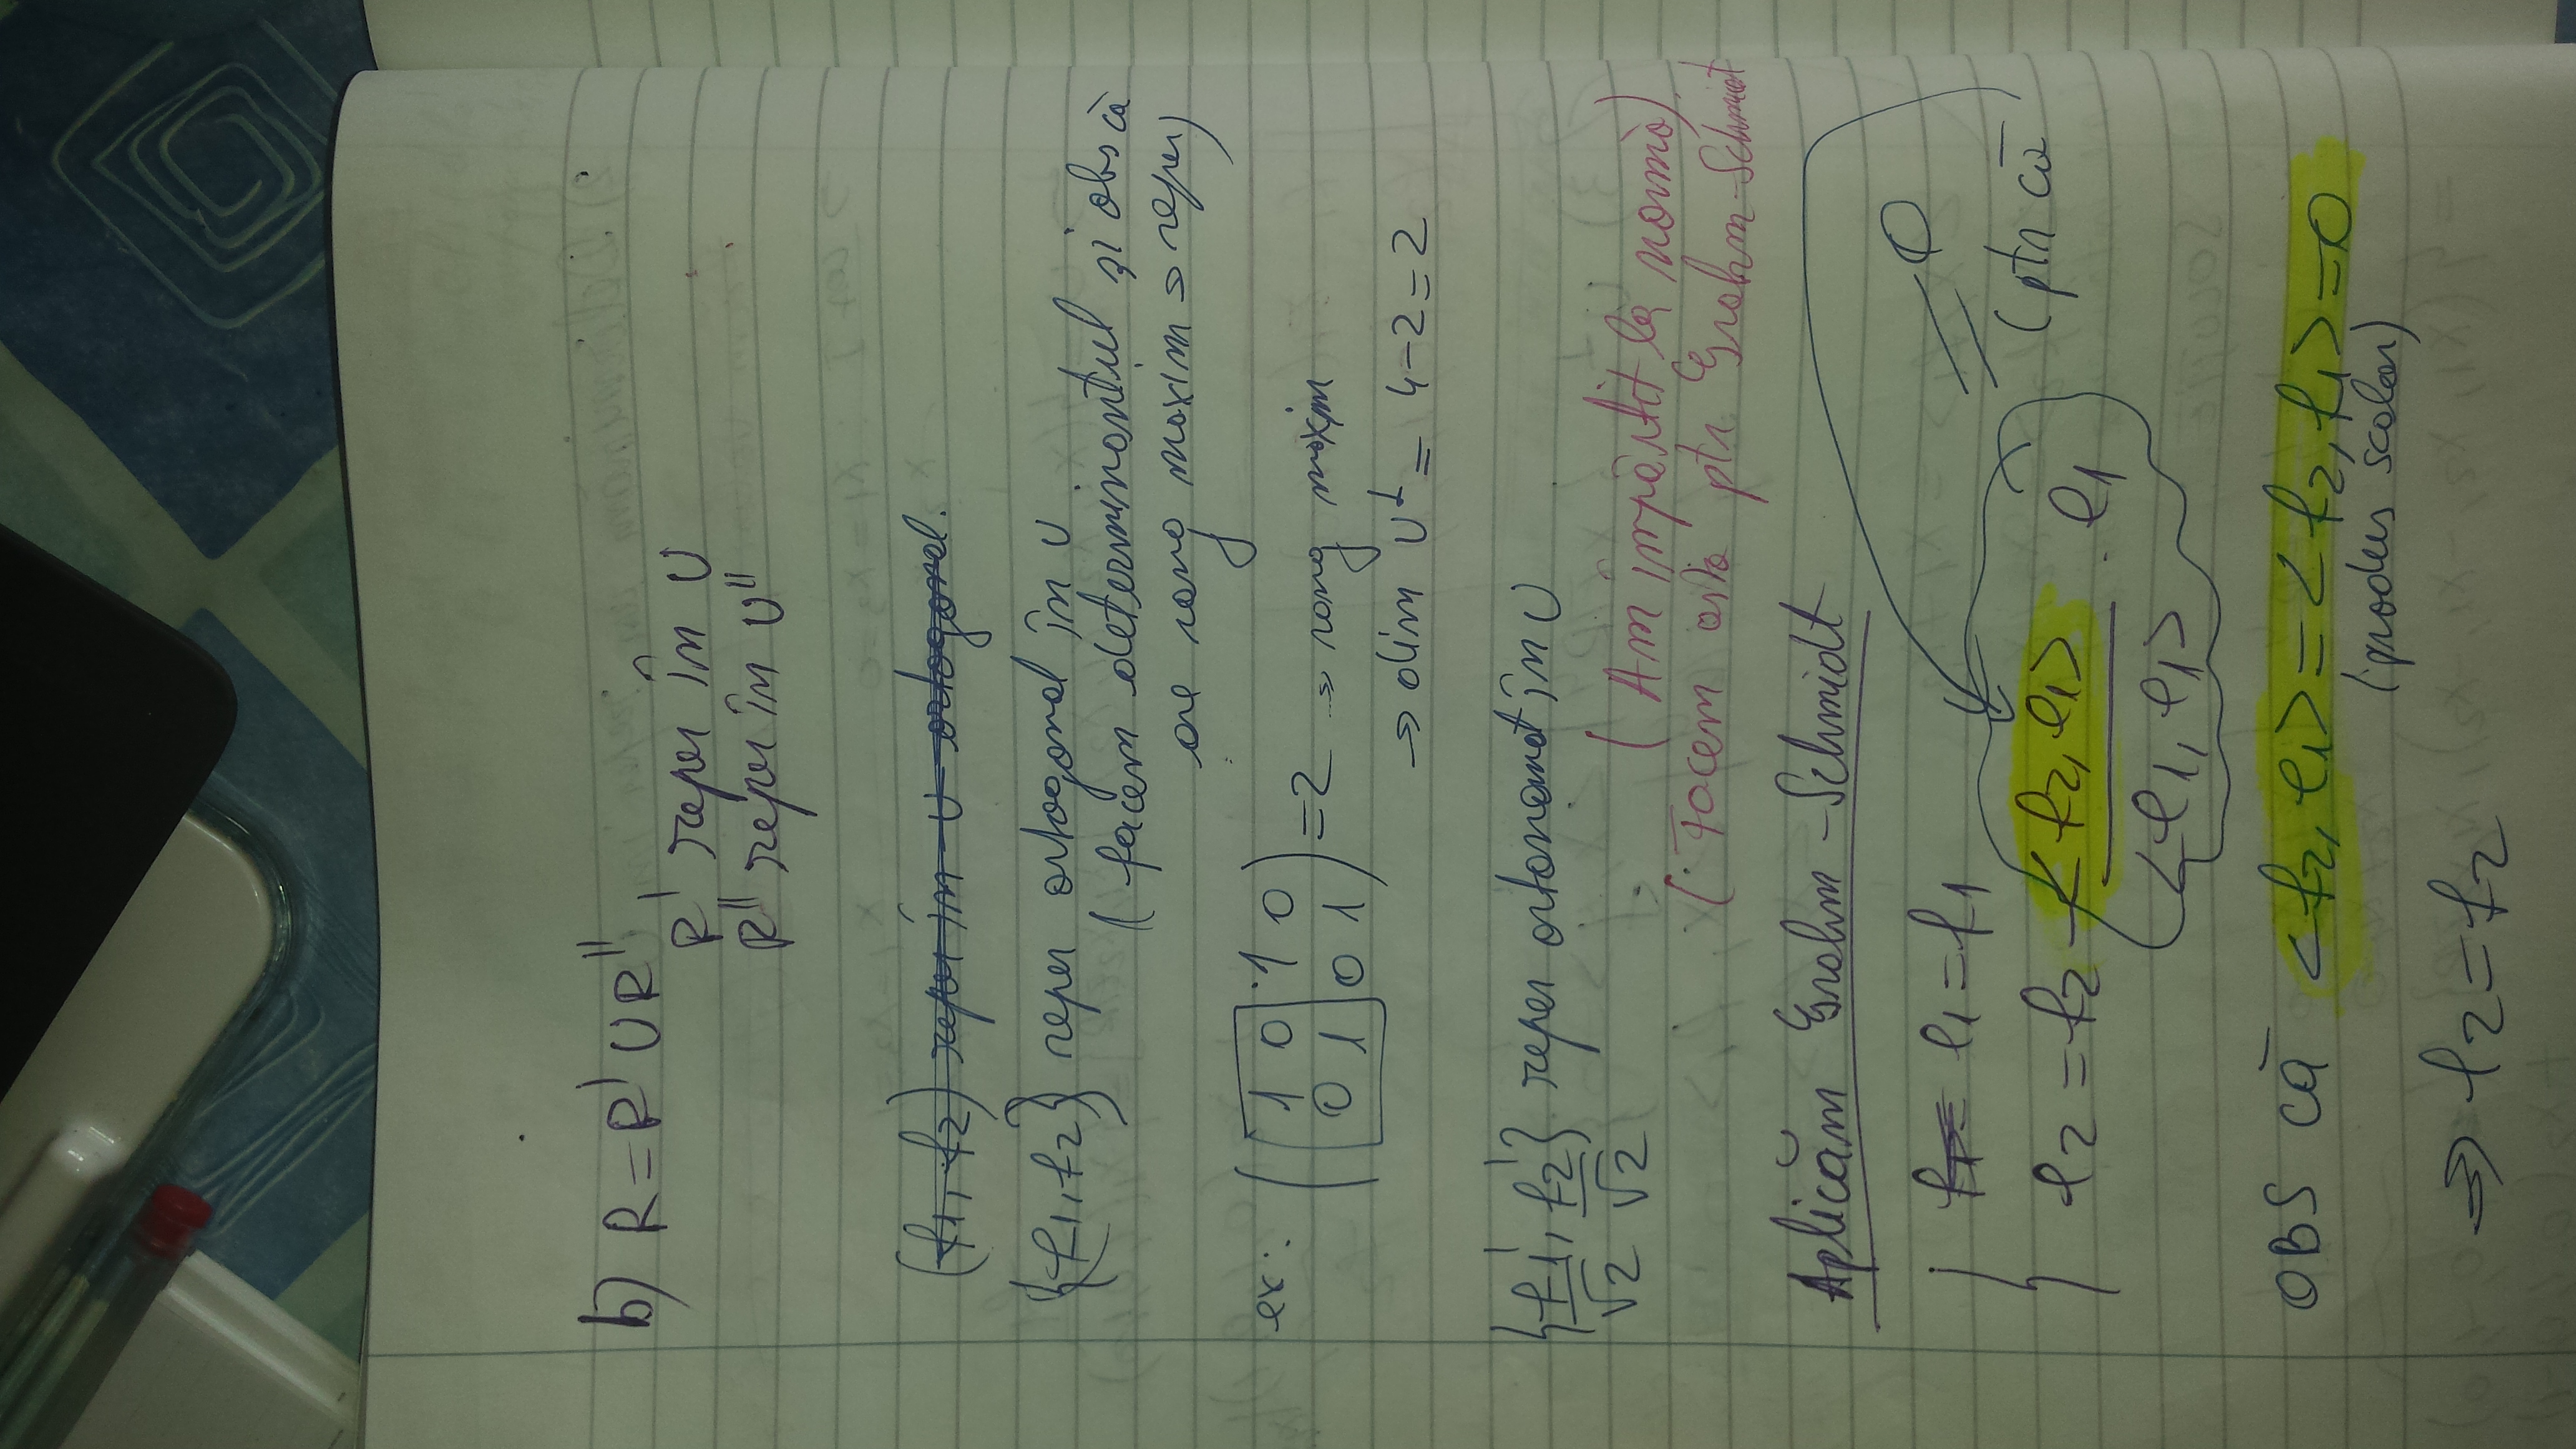 b) R = R' ∪ R'',
R' reper în U
R'' reper în U''
(f1, f2) reper în U ortogonal.
{f1, f2} reper ortogonal în U
( facem determinantul și obs că
are rang maxim ⇒ reper)
ex: ( 1 0 1 0
0 1 0 1 ) = 2 ⇒ rang maxim
⇒ dim U⊥ = 4-2=2
{f1'/√2, f2'/√2} reper ortonormat în U
( Am împărțit la normă)
( Facem asta ptr Grahm-Schmidt
Aplicăm Grahm-Schmidt
f1= e1 = f1
e2 = f2 - <f2, e1> / <e1, e1> · e1 = 0
(ptr că
OBS că <f2, e1> = <f2, f1> = 0
(produs scalar)
⇒ e2 = f2